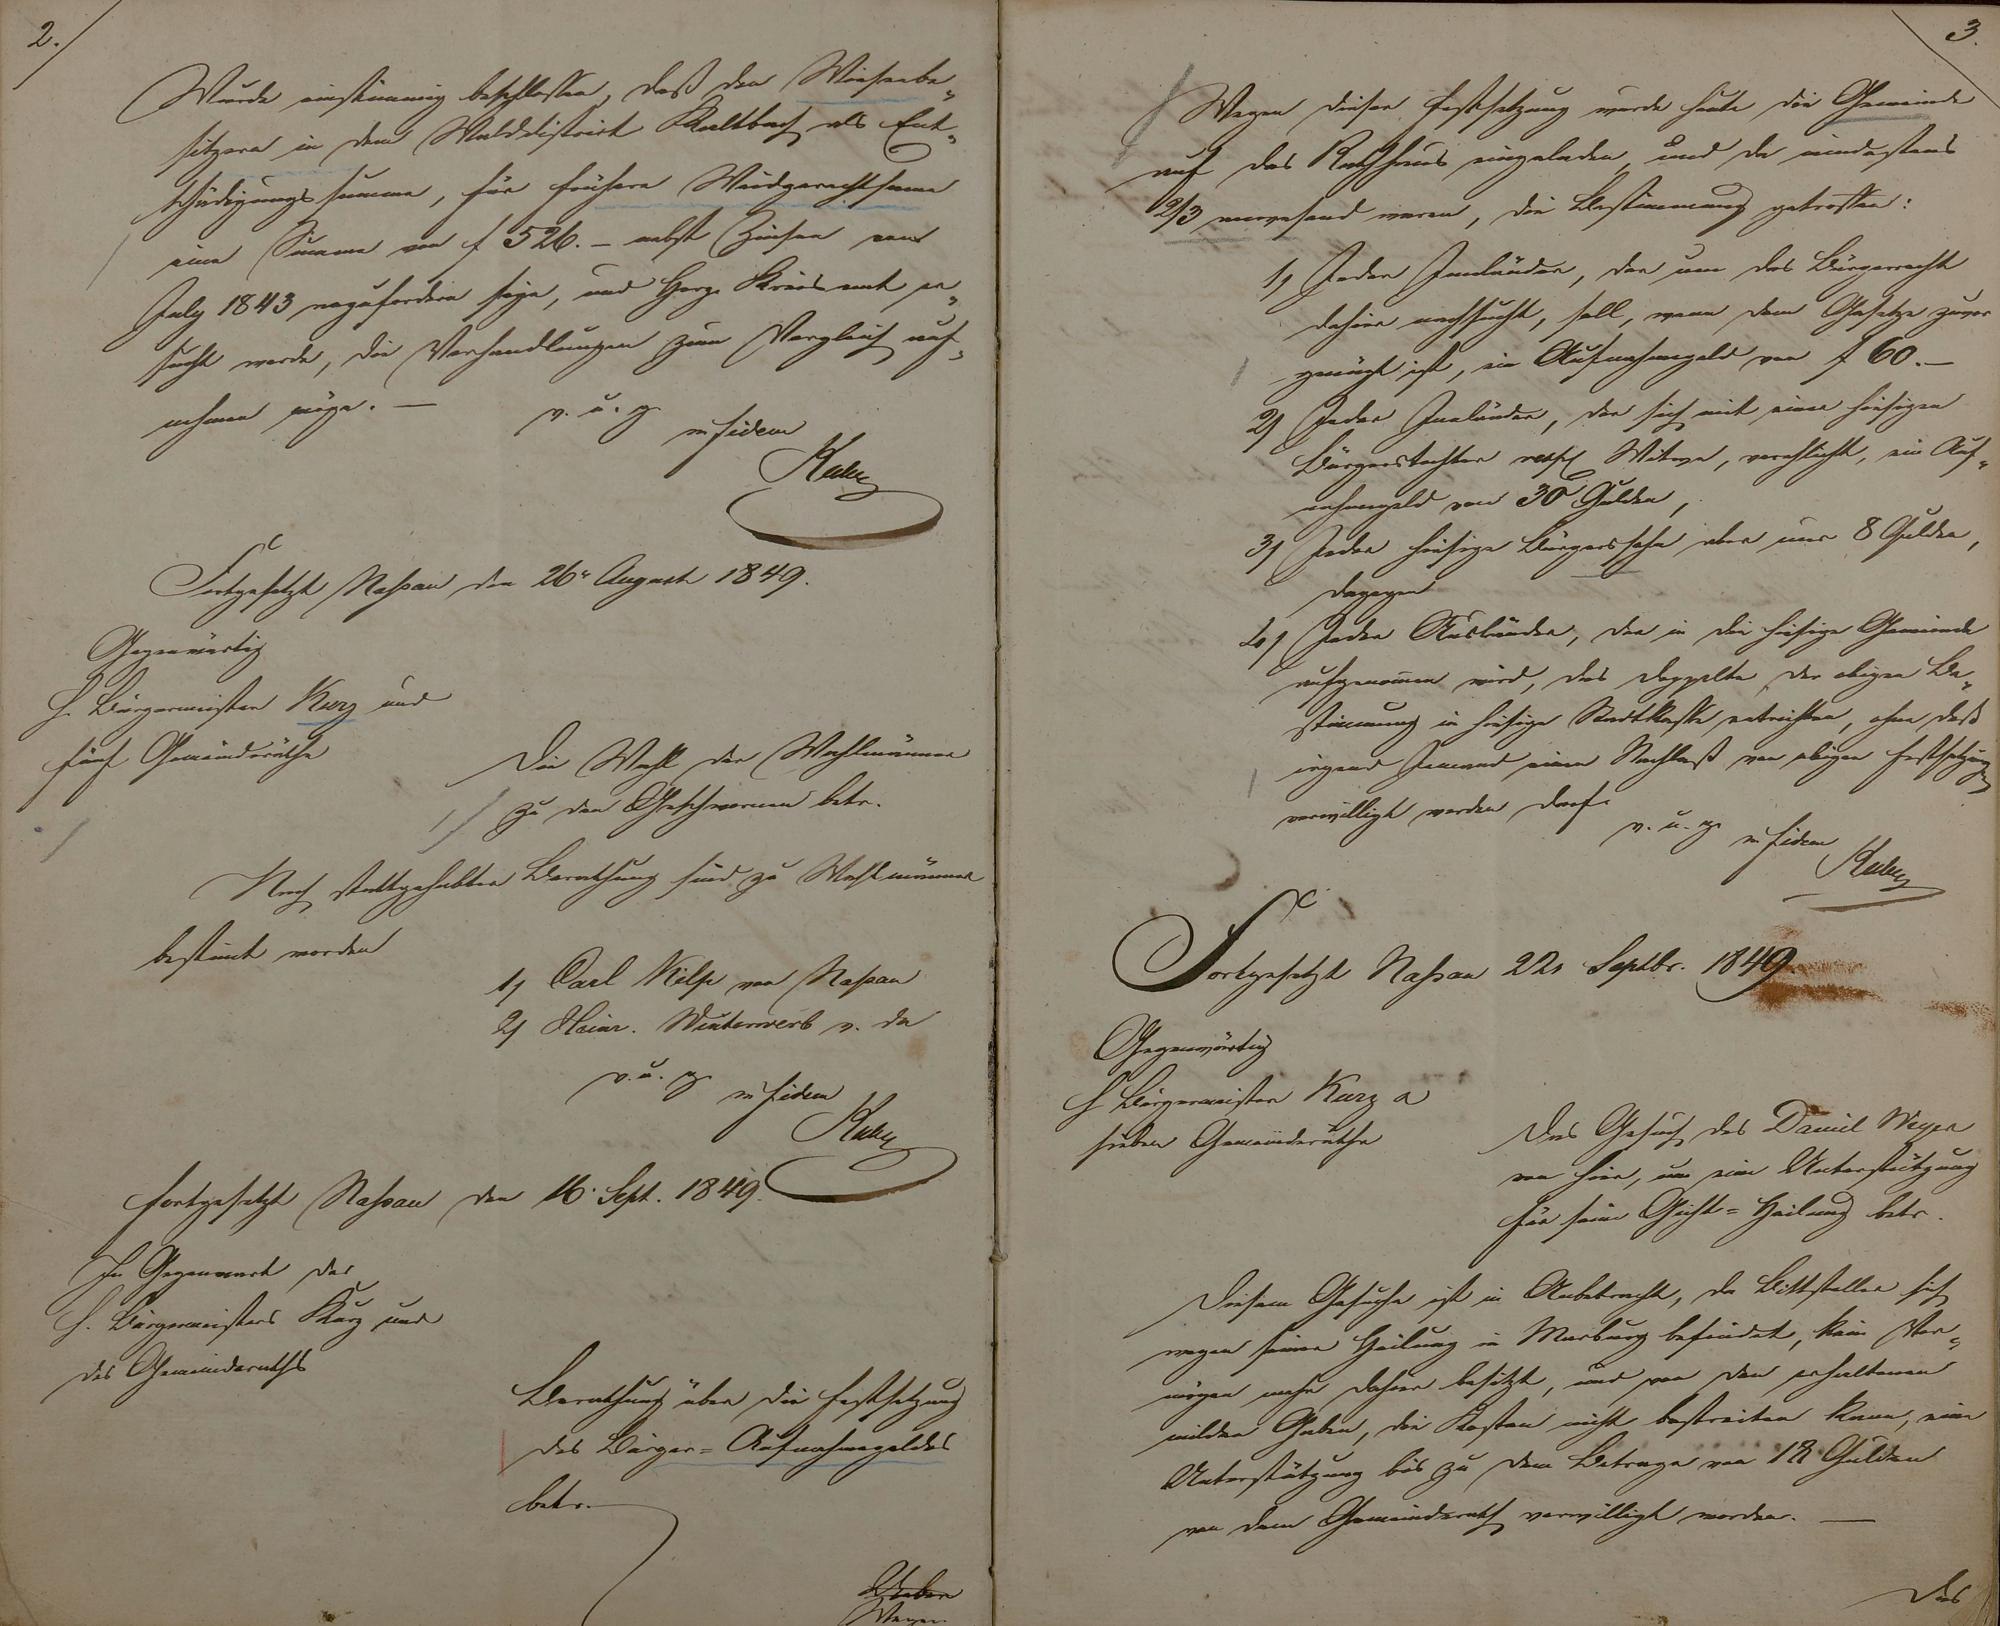 2.
Wurde einstimmig beschlossen, daß den Wiesenbe„
sitzern in dem Walddistrict Kaltbach als Ent„
schädigungssumme, für frühere Weidgerechtsame
eine Summe von f 526.— nebst Zinsen vom
July 1843 anzufordern sey, und Herz. Kreisamt er„
sucht werde, die Verhandlungen zum Vergleich auf„
nehmen möge. —
v. u. g.
in fidem
Fortgesetzt Nassau den 26n August 1849.
Gegenwärtig
H. Bürgermeister Kurz und
fünf Gemeinderäthe
Die Wahl der Wahlmänner
zu den Geschwornen betr.
Nach stattgehabter Berathung sind zu Wahlmänner
bestimt worden
1, Carl Kilp von Nassau
2, Heinr. Winterwerb v. da
v. u. g.
in fidem
Fortgesetzt Nassau den 16. Sept. 1849.
In Gegenwart des
H. Bürgermeisters Kurz und
des Gemeinderaths
Berathung über die Festsetzung
des Bürger=Aufnahmegeldes
betr.
Wegen
3.
Wegen dieser Festsetzung wurde heute die Gemeinde
auf das Rathhaus eingeladen, und da mindestens
2/3 anwesend waren, die Bestimmung getroffen:
1, Jeder Inländer, der um das Bürgerrecht
dahier nachsucht, soll, wenn dem Gesetze zuvor
genügt ist, ein Aufnahmegeld von f 60.—
2, Jeder Inländer, der sich mit einer hiesigen
Bürgerstochter resp. Witwe, verehlicht, ein Auf„
nahmegeld von 30 Gulden,
3, Jeder hiesige Bürgerssohn aber nur 8 Gulden,
dagegen
4, Jeder Ausländer, der in die hiesige Gemeinde
aufgenomen wird, das Doppelte der obigen Be„
stimmung in hiesige Stadtkasse entrichten, ohne daß
irgend Jemand einen Nachlaß von obigen Festsetzungen
verwilligt werden darf.
v. u. g.
in fidem
Fortgesetzt Nassau 22n Septbr. 1849.
Gegenwärtig
H Bürgermeister Kurz u
sieben Gemeinderäthe
Das Gesuch des Daniel Meyer
von hier, um eine Unterstützung
für seine Gicht=Heilung betr.
Diesem Gesuche ist in Anbetracht, da Bittsteller sich
wegen seiner Heilung in Marburg befindet, kein Ver„
mögen mehr dahier besitzt, und von den erhaltenen
milden Gaben, die Kosten nicht bestreiten kann, eine
Unterstützung bis zu dem Betrage von 18 Gulden
von dem Gemeinderath verwilligt worden. —
Das